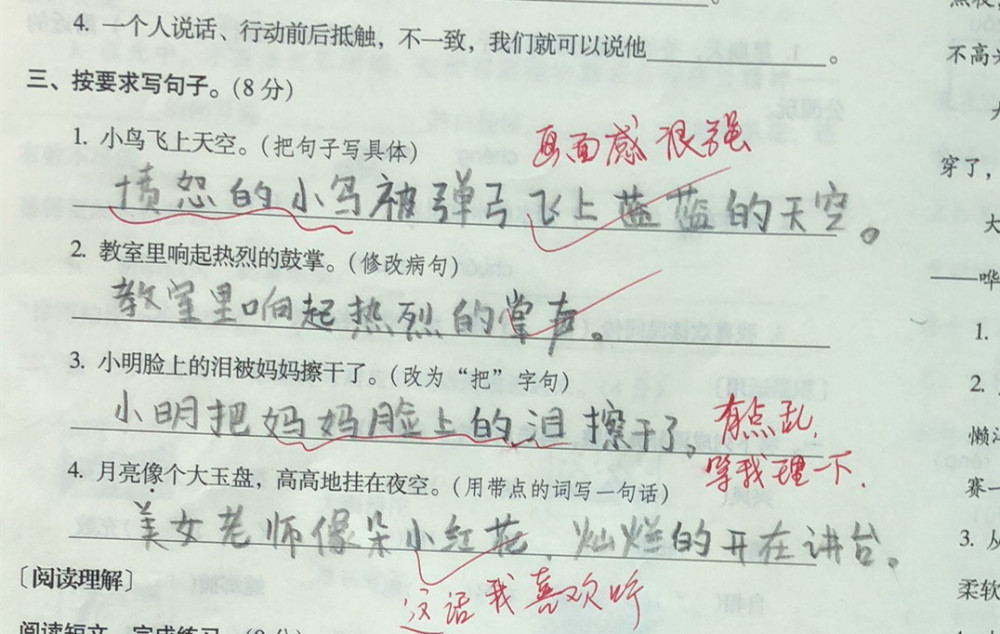 4. 一个人说话、行动前后抵触，不一致，我们就可以说他＿＿＿＿＿＿。
三、按要求写句子。(8分)
1. 小鸟飞上天空。(把句子写具体)
画面感很强
愤怒的小鸟被弹弓飞上蓝蓝的天空。
2. 教室里响起热烈的鼓掌。(修改病句)
教室里响起热烈的掌声。
3. 小明脸上的泪被妈妈擦干了。(改为“把”字句)
小明把妈妈脸上的泪擦干了。
有点乱，
等我理一下.
4. 月亮像个大玉盘，高高地挂在夜空。(用带点的词写一句话)
美女老师像朵小红花，灿烂的开在讲台。
这话我喜欢听
〔阅读理解〕
阅读短文，完成练习。(8分)
不高兴
穿了，
大
——哗
1.
2.
懒洋
赛一
3. 从
柔软